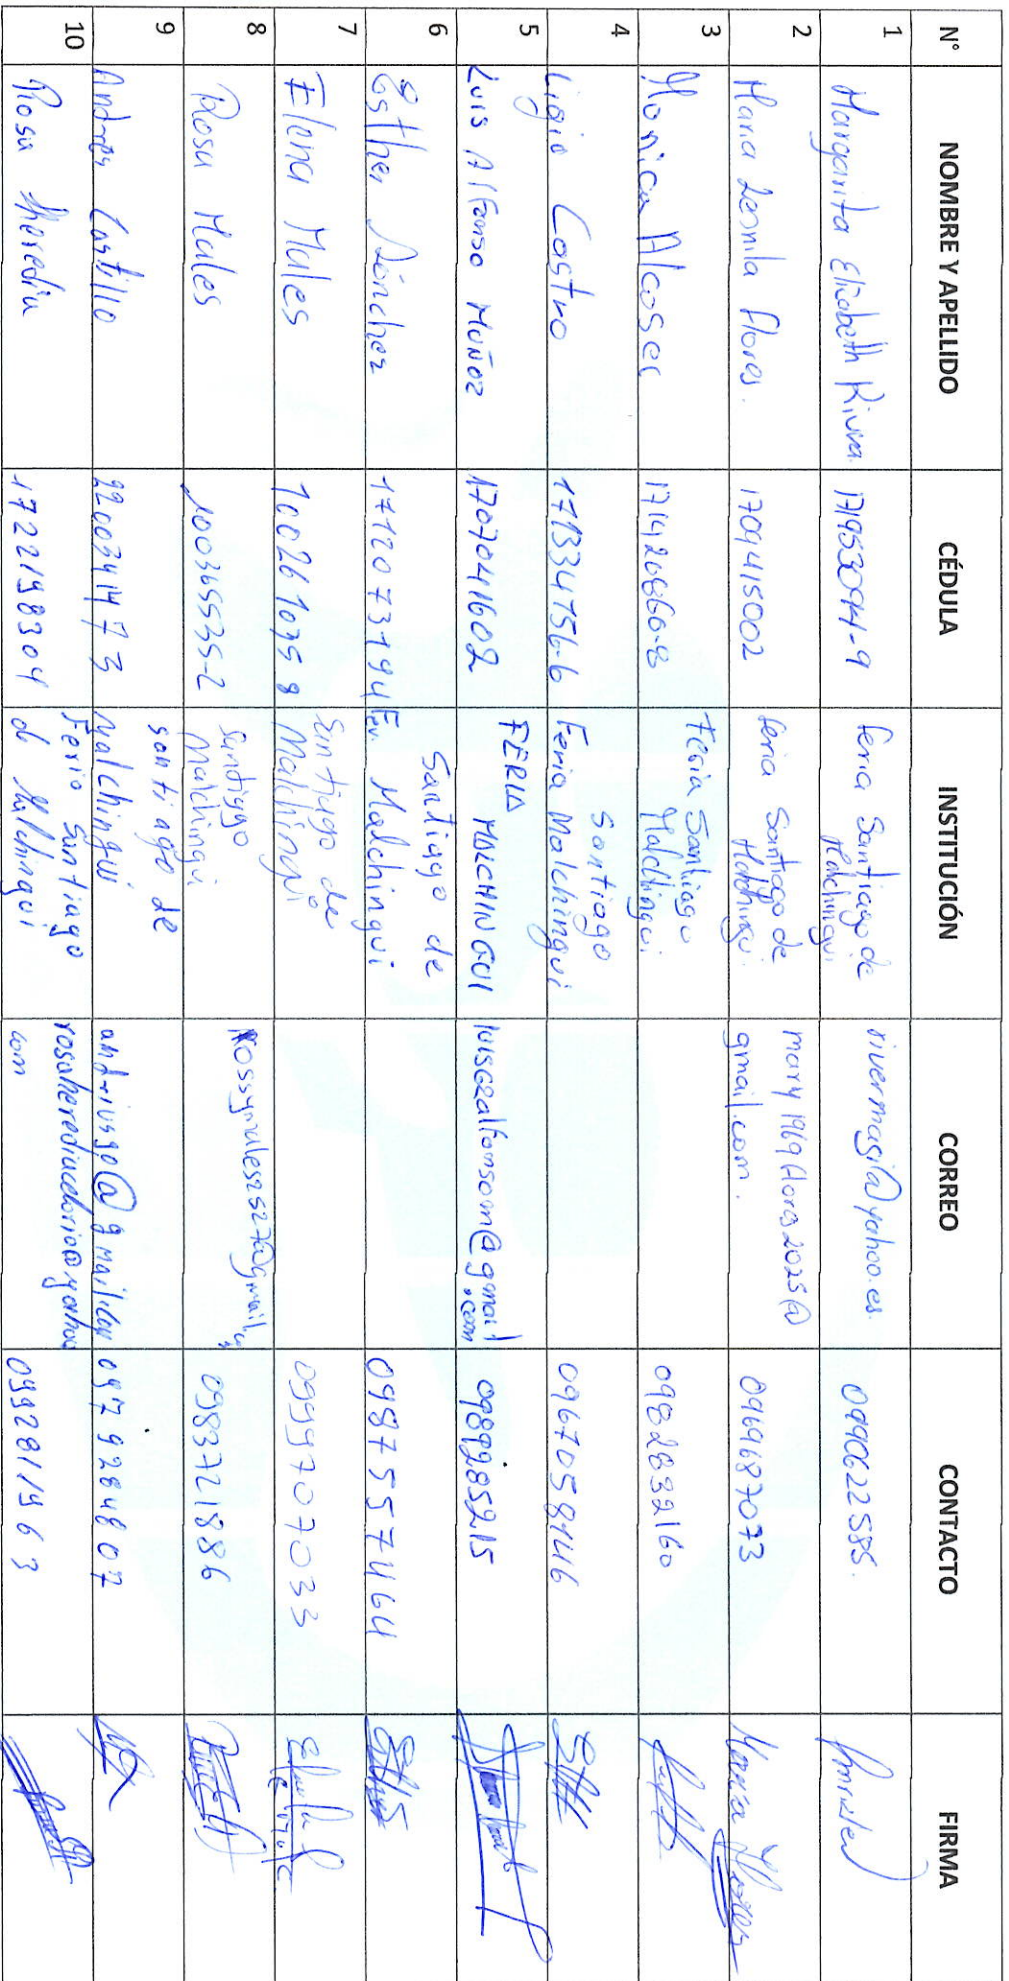 N° NOMBRE Y APELLIDO CÉDULA INSTITUCIÓN CORREO CONTACTO FIRMA
1 Margarita Elizabeth Rivera. 171953094-9 feria Santiago de Malchingui rivermagi@yahoo.es. 0990622585.
2 Maria Lesmila Flores. 1709415002 feria Santiago de Malchingui. mary1969flores2025@gmail.com. 0969687073 Maria Flores
3 Monica Alcoser 171426866-8 Feria Santiago Malchingui. 0982832160
4 Ligia Castro 171334756-6 Feria Santiago Malchingui 0967058146
5 LUIS Alfonso MUÑOZ 1707041602 FERIA MALCHINGUI luis62alfonsom@gmail.com 0989285215
6 Esther Sánchez 1712073194 Fer. Santiago de Malchingui 0987557464
7 Elena Males 1002610358 Santiago de Malchingui 0999707033
8 Rosa Males 100365535-2 Santiago Malchingui Rossymales2527@gmail. 0983721886
9 Andres Castillo 2200341473 santiago de Malchingui andriusgo@gmail.com 0979284807
10 Rosa Heredia 1722198304 Feria Santiago de Malchingui rosaherediacelorio@yahoo.com 0992811963